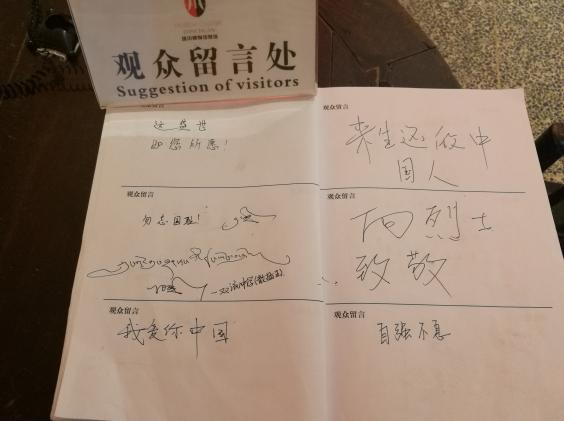 观众留言处
Suggestion of visitors
观众留言
这盛世
如您所愿！
观众留言
勿忘国耻！
观众留言
我爱你中国
观众留言
来生还做中
国人
观众留言
向烈士
致敬
观众留言
自强不息